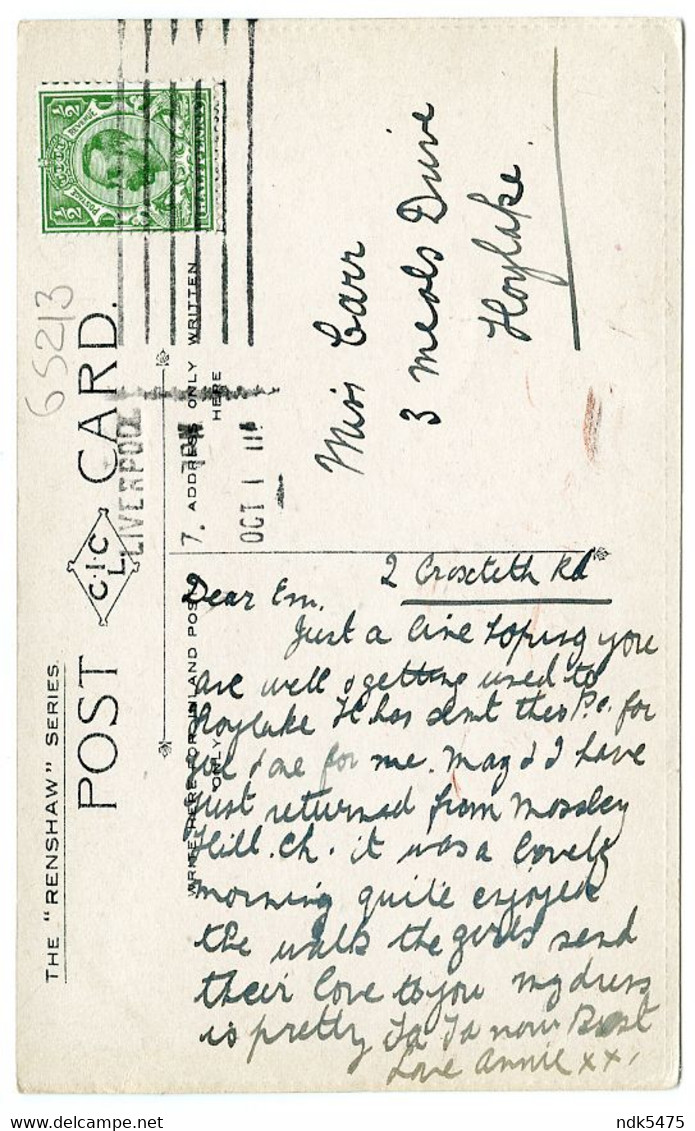 THE "RENSHAW" SERIES.
POST CARD.
C.I.C
L.
65213
½ ½
POSTAGE REVENUE
HALFPENNY
LIVERPOOL
7 PM
OCT 1 11
WRITE HERE FOR INLAND POST
ONLY
ADDRESS ONLY WRITTEN
HERE
Miss Carr
3 Meols Drive
Hoylake.
2 Croxteth Rd
Dear Em.
Just a line hoping you
are well & getting used to
Hoylake H. has sent this P.c. for
you & one for me. May & I have
just returned from Mossley
Hill. Ch. it was a lovely
morning quite enjoyed
the walk the girls send
their love to you my dress
is pretty Ta Ta now Best
Love Annie xx,
ndk5475